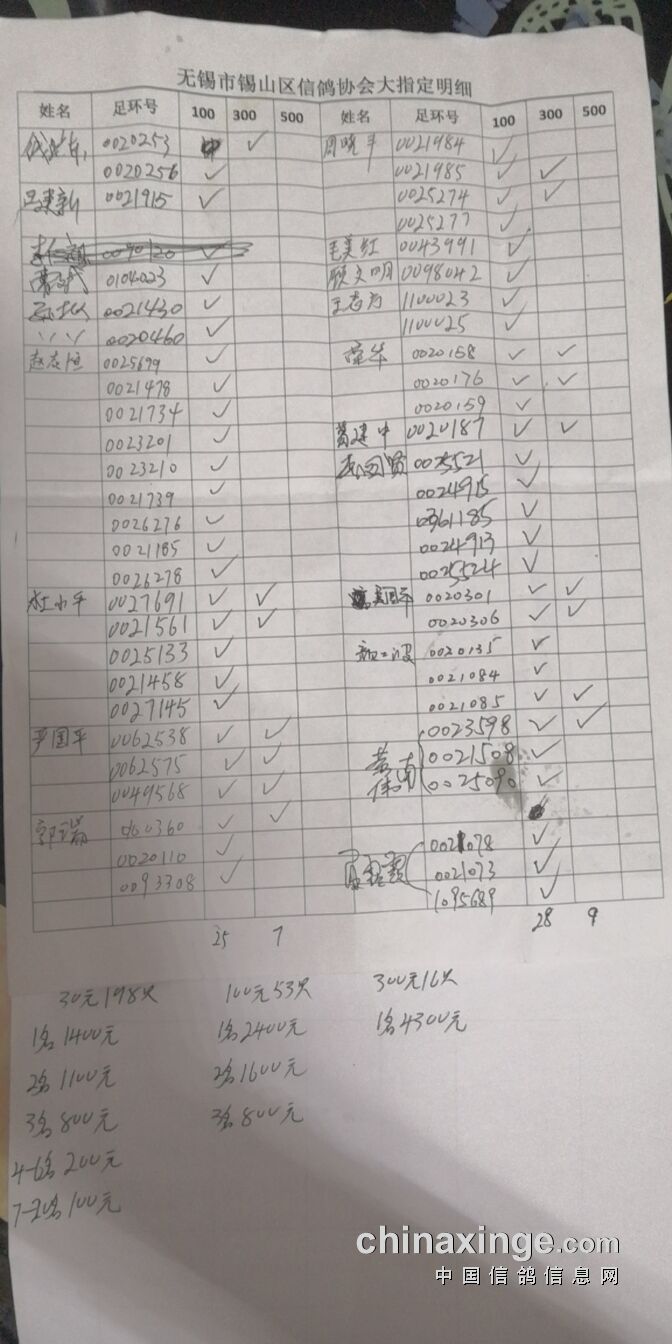 无锡市锡山区信鸽协会大指定明细
姓名 足环号 100 300 500 姓名 足环号 100 300 500
0020253 ✓ 周晓平 0021984 ✓
0020256 ✓ 0021985 ✓ ✓
吕建新 0021915 ✓ 0025274 ✓ ✓
0025277 ✓
0090120 ✓ 毛美红 0043991 ✓
0104023 ✓ 顾文明 0098042 ✓
0021430 ✓ 1100023 ✓
0020460 ✓ 1100025 ✓
0025699 ✓ 0020158 ✓ ✓
0021478 ✓ 0020176 ✓ ✓
0021734 ✓ 0020159 ✓
0023201 ✓ 葛建中 0020187 ✓ ✓
0023210 ✓ 0025521 ✓
0021739 ✓ 0024915 ✓
0026276 ✓ 0361185 ✓
0021185 ✓ 0024913 ✓
0026278 ✓ 0025524 ✓
杜小平 0027691 ✓ ✓ 0020301 ✓ ✓
0021561 ✓ ✓ 0020306 ✓ ✓
0025133 ✓ 0020135 ✓
0021458 ✓ 0021084 ✓
0027145 ✓ 0021085 ✓ ✓
尹国平 0062538 ✓ ✓ 0023598 ✓ ✓
0062575 ✓ ✓ 0021508 ✓
0049568 ✓ ✓ 0025090 ✓
郭瑞 060360 ✓ ✓
0020110 ✓ 0021078 ✓
0093308 ✓ 0021073 ✓
1095689 ✓
25 7 28 9
30元198只 100元53只 300元16只
1名1400元 1名2400元 1名4300元
2名1100元 2名1600元
3名800元 3名800元
4-6名200元
7-20名100元
chinaxinge.com
中国信鸽信息网